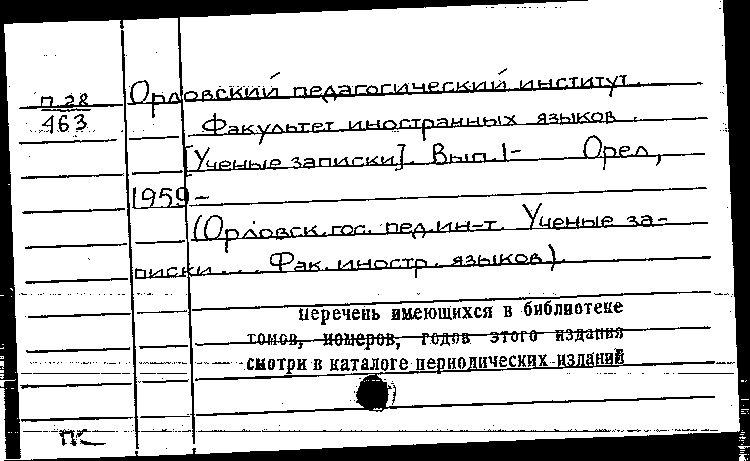 П 28
463
Орловский педагогический институт.
Факультет иностранных языков.
[Ученые записки]. Вып.1- Орел,
1959-
(Орловск.гос. пед.ин-т. Ученые за-
писки... Фак. иностр. языков).
перечень имеющихся в библиотеке
томов, номеров, годов этого издания
смотри в каталоге периодических изданий
ПК